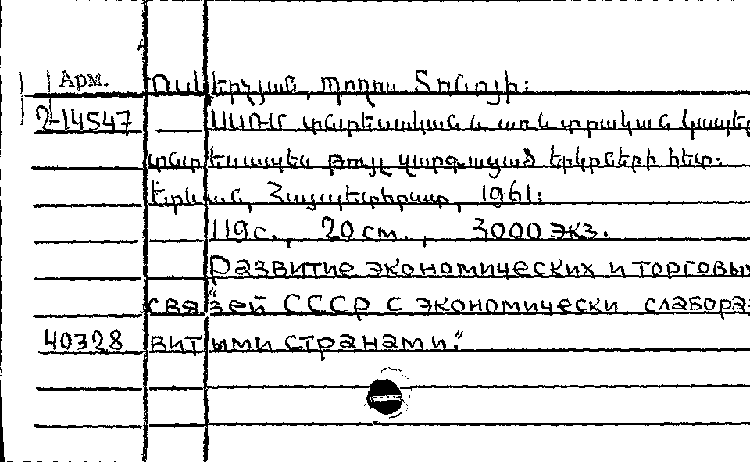 Арм.
Ոսկերչյան, Պողոս Տոնոյի:
2-14547 ՍՍՌՄ տնտեսական և առևտրական կապեր
տնտեսապես թույլ զարգացած երկրների հետ:
Երևան, Հայպետհրատ, 1961:
119 с., 20 см., 3000 экз.
Развитие экономических и торговых
связей СССР с экономически слабораз
40328 витыми странами."